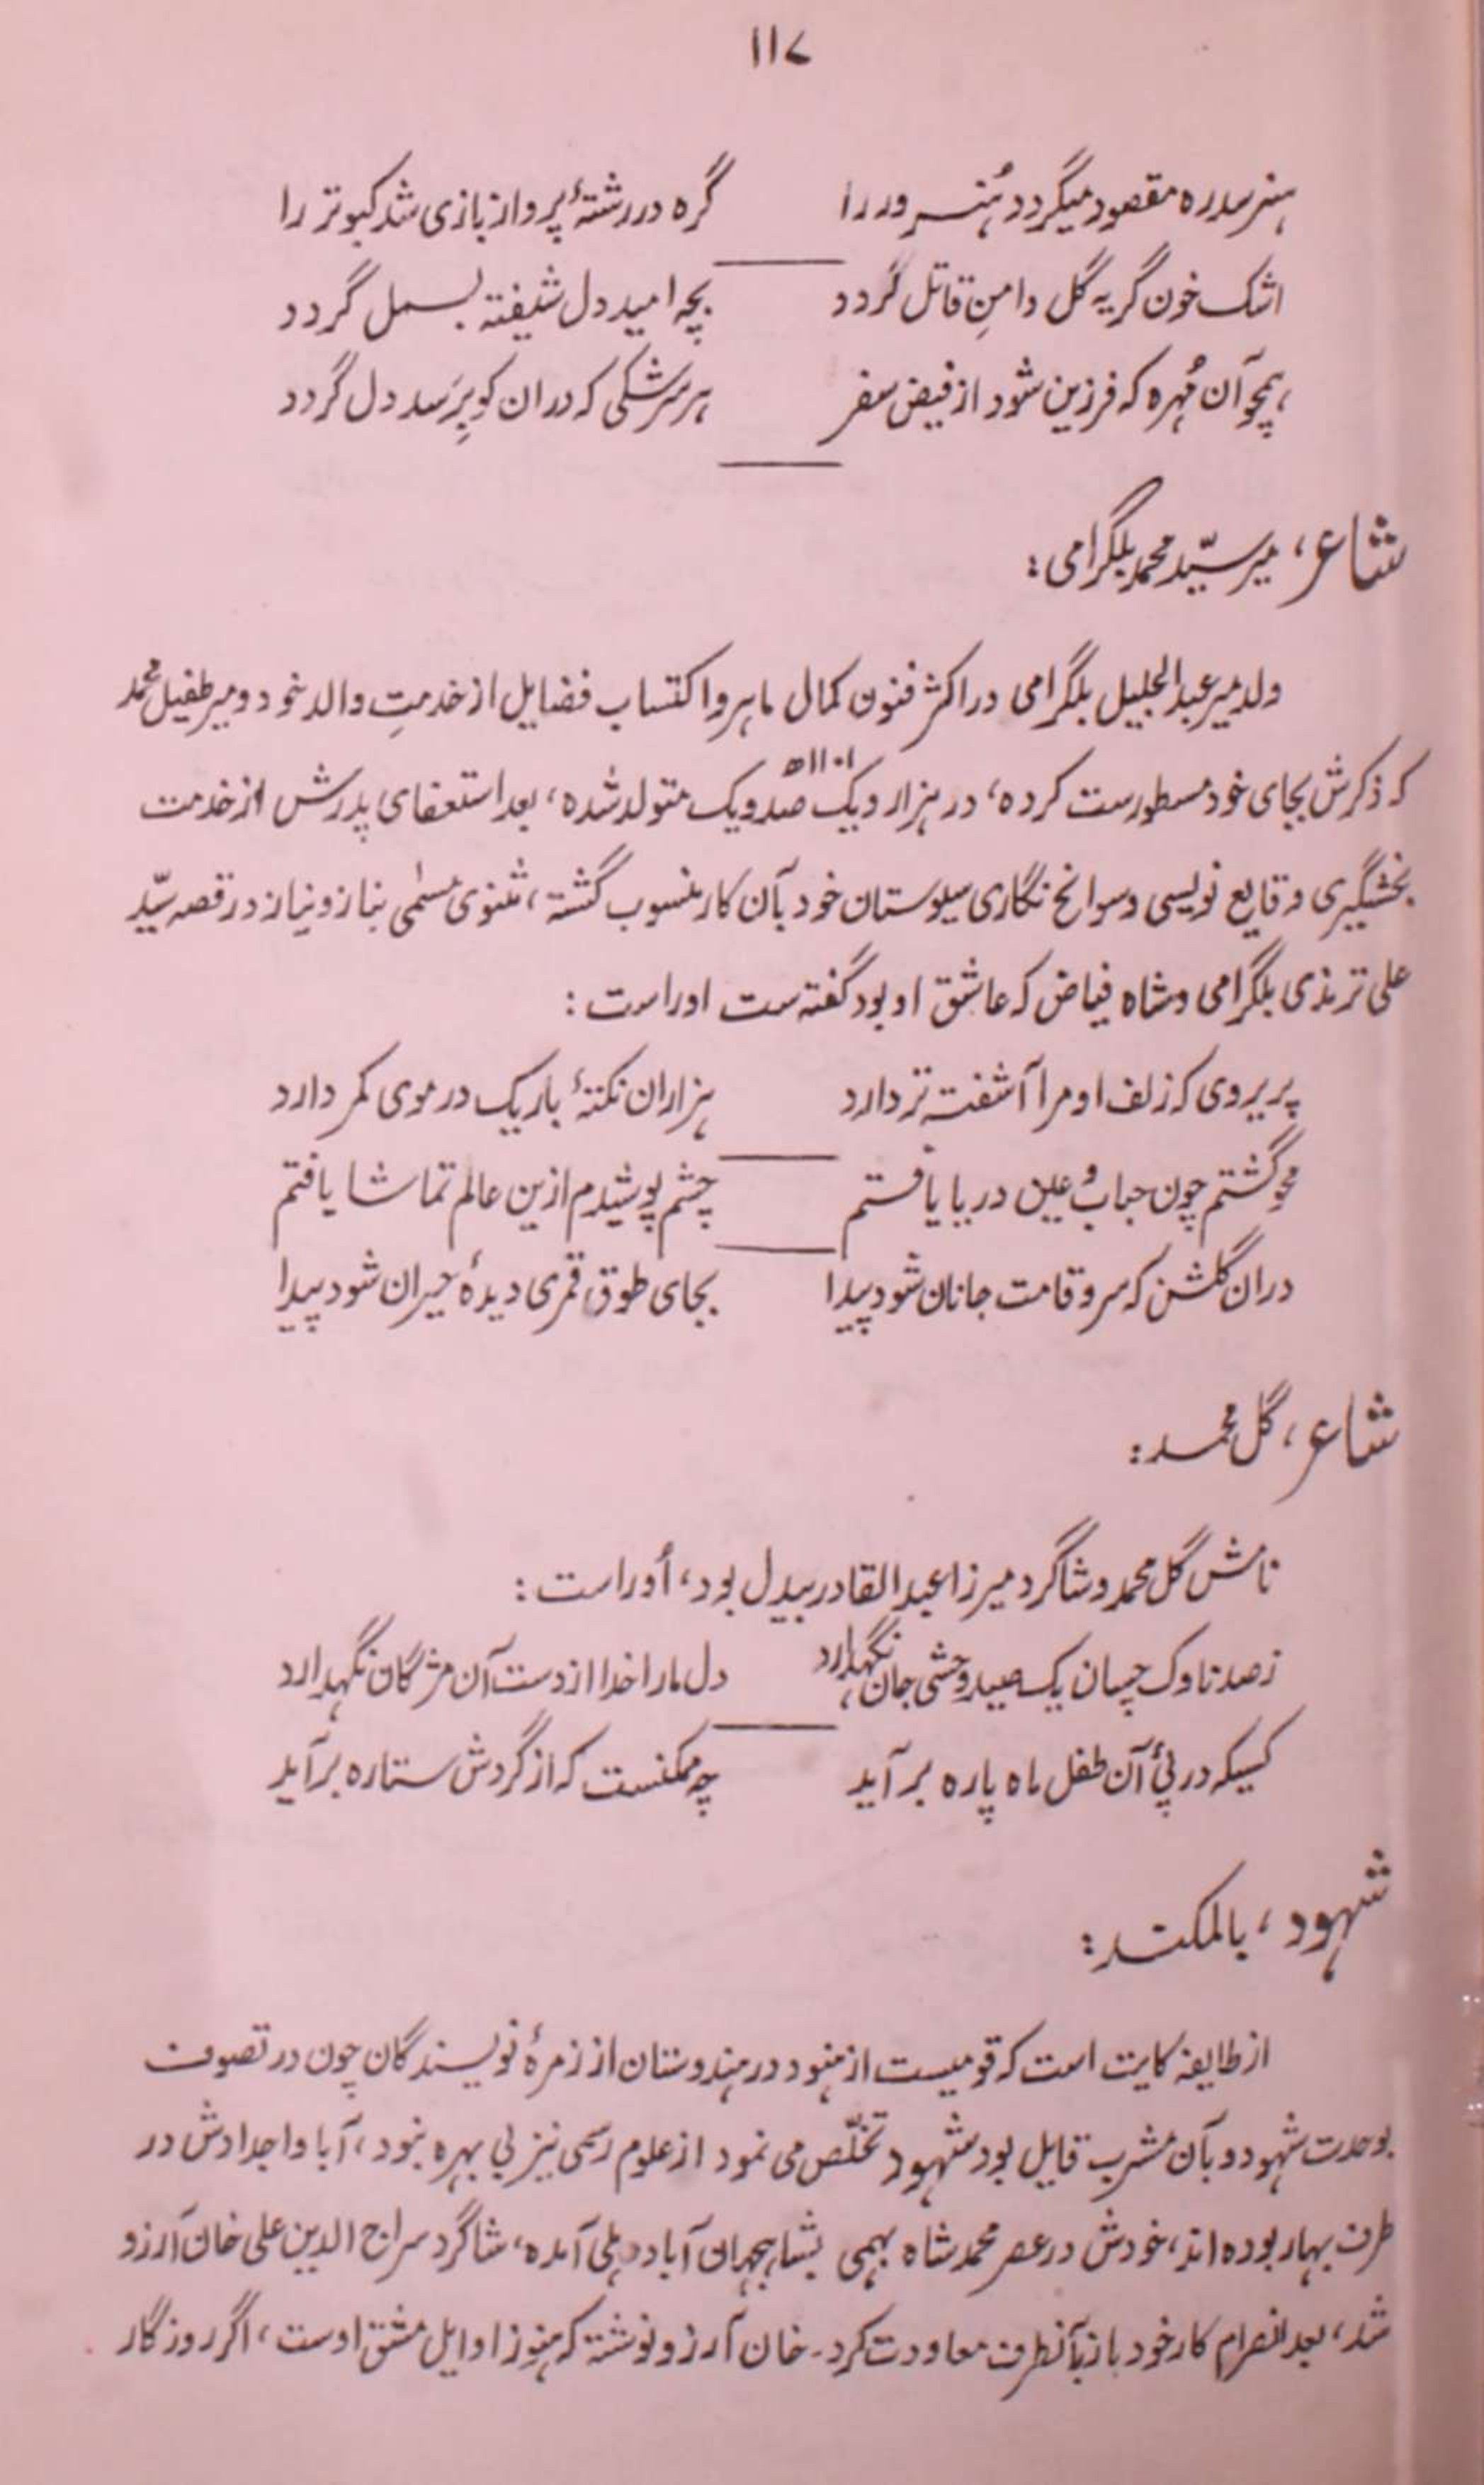 ۱۱۷
هنر سد ره مقصود میگردد هُنرور را گره در رشتهٔ پرواز بازی شد کبوتر را
اشک خون گریه گل دامنِ قاتل گردد بچه امید دل شیفته بسمل گردد
همچو آن مُهره که فرزین شود از فیض سفر هر سرشکی که دران کو بِرَسد دل گردد
شاعر، میر سیّد محمد بلگرامی:
ولد میر عبدالجلیل بلگرامی در اکثر فنون کمال ماهر و اکتساب فضایل از خدمتِ والد خود و میر طفیل محمد
که ذکرش بجای خود مسطورست کرده، در هزار و یک صد و یک ۱۱۰۱ھ متولد شده، بعد استعفای پدرش از خدمت
بخشیگیری وقایع نویسی و سوانح نگاری سیوستان خود بآن کار منسوب گشته، مثنوی مسمٰی بناز و نیاز در قصه سیّد
علی ترمذی بلگرامی و شاه فیاض که عاشق او بود گفته ست اوراست:
پریروی که زلف او مرا آشفته تر دارد هزاران نکتهٔ باریک در موی کمر دارد
محو گشتم چون حباب و عین دریا یافتم چشم پوشیدم ازین عالم تماشا یافتم
دران گلشن که سرو قامت جانان شود پیدا بجای طوق قمری دیدهٔ حیران شود پیدا
شاعر، گل محمد:
نامش گل محمد و شاگرد میرزا عبدالقادر بیدل بود، اُوراست:
ز صد ناوک چسان یک صید وحشی جان نگهدارد، دل مارا خدا از دست آن مژگان نگهدارد
کسیکه در پیٔ آن طفل ماه پاره برآید چه ممکنست که از گردش ستاره برآید
شهود، بالمکند:
از طایفه کایت است که قومیست از هنود در هندوستان از زمرهٔ نویسندگان چون در تصوف
بوحدت شهود و بآن مشرب قایل بود شهود تخلّص می نمود از علوم رسمی نیز بی بهره نبود، آبا و اجدادش در
طرف بهار بوده اند، خودش در عصر محمد شاه بهمی بشاهجهان آباد دهلی آمده، شاگرد سراج الدین علی خان آرزو
شد، بعد انصرام کار خود باز بآنطرف معاودت کرد۔ خان آرزو نوشته که هنوز اوایل مشق اوست، اگر روزگار